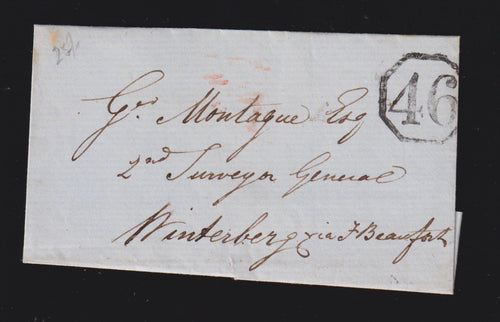 25/-
46
Geo Montague Esq
2nd Surveyor General
Winterberg via F Beaufort